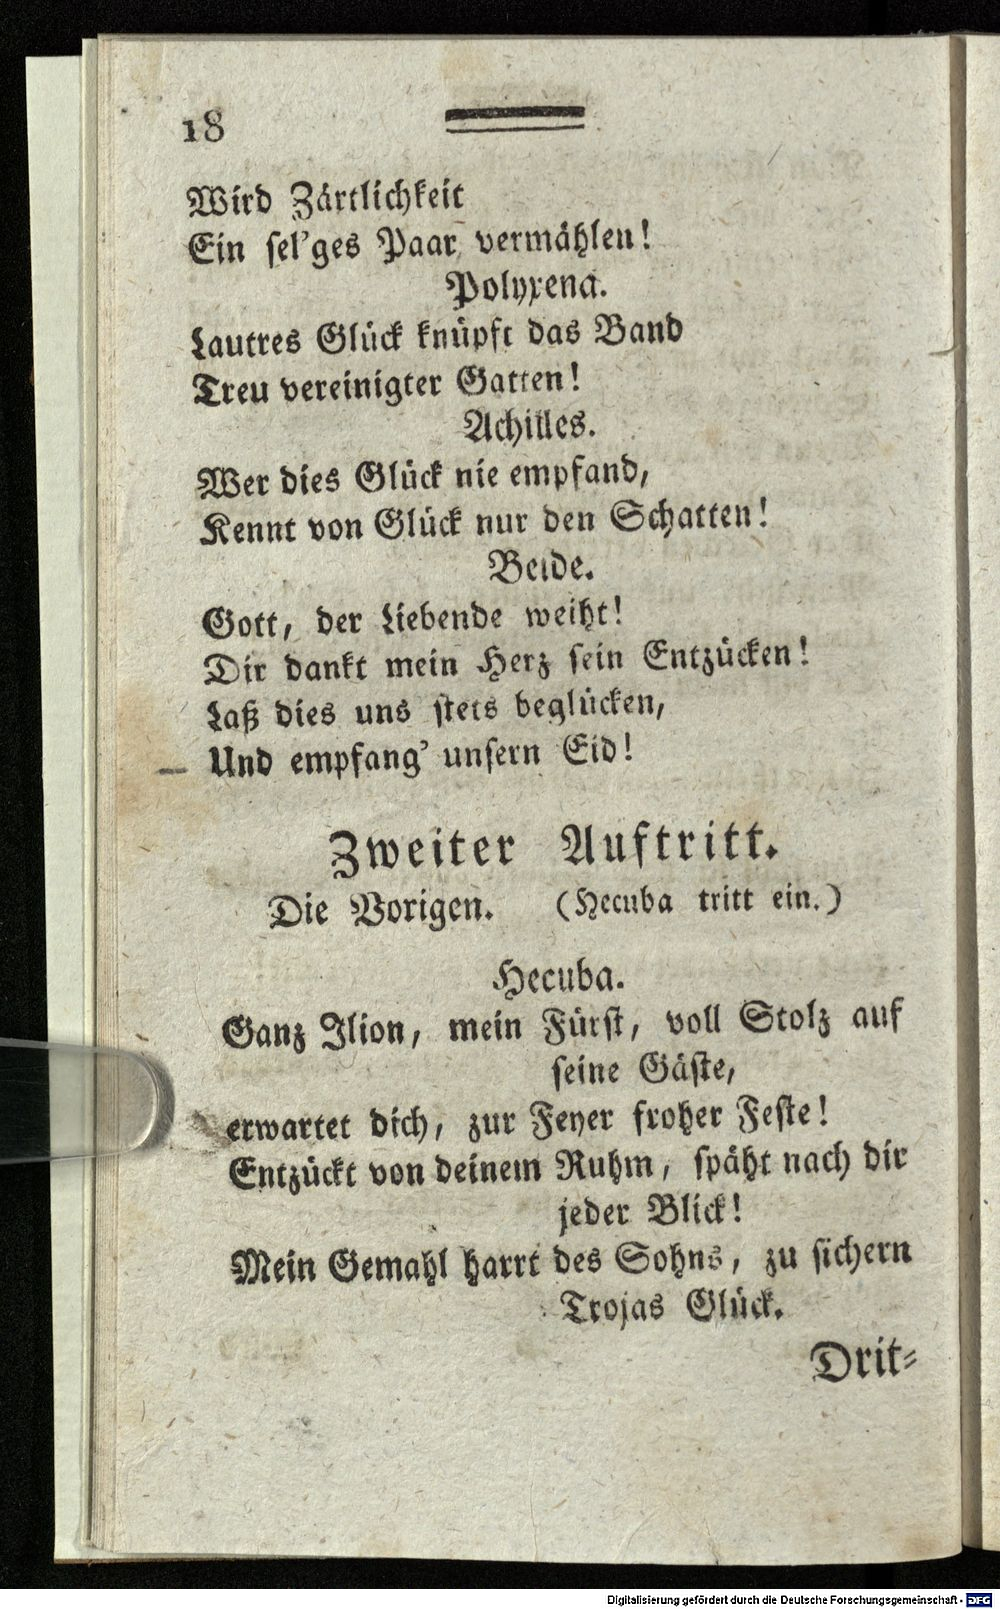 18
Wird Zärtlichkeit
Ein sel'ges Paar vermählen!
Polyxena.
Lautres Glück knüpft das Band
Treu vereinigter Gatten!
Achilles.
Wer dies Glück nie empfand,
Kennt von Glück nur den Schatten!
Beide.
Gott, der Liebende weiht!
Dir dankt mein Herz sein Entzücken!
Laß dies uns stets beglücken,
Und empfang' unsern Eid!
Zweiter Auftritt.
Die Vorigen. (Hecuba tritt ein.)
Hecuba.
Ganz Ilion, mein Fürst, voll Stolz auf
seine Gäste,
erwartet dich, zur Feyer froher Feste!
Entzückt von deinem Ruhm, späht nach dir
jeder Blick!
Mein Gemahl harrt des Sohns, zu sichern
Trojas Glück.
Drit-
Digitalisierung gefördert durch die Deutsche Forschungsgemeinschaft - DFG